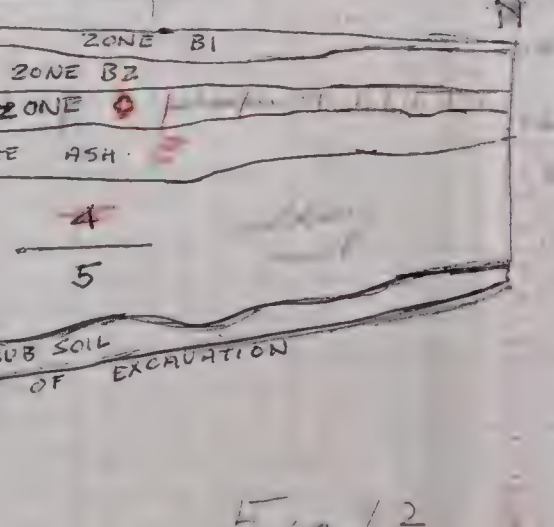 N
ZONE B1
ZONE B2
ZONE
ASH
4
5
SUB SOIL
OF EXCAVATION